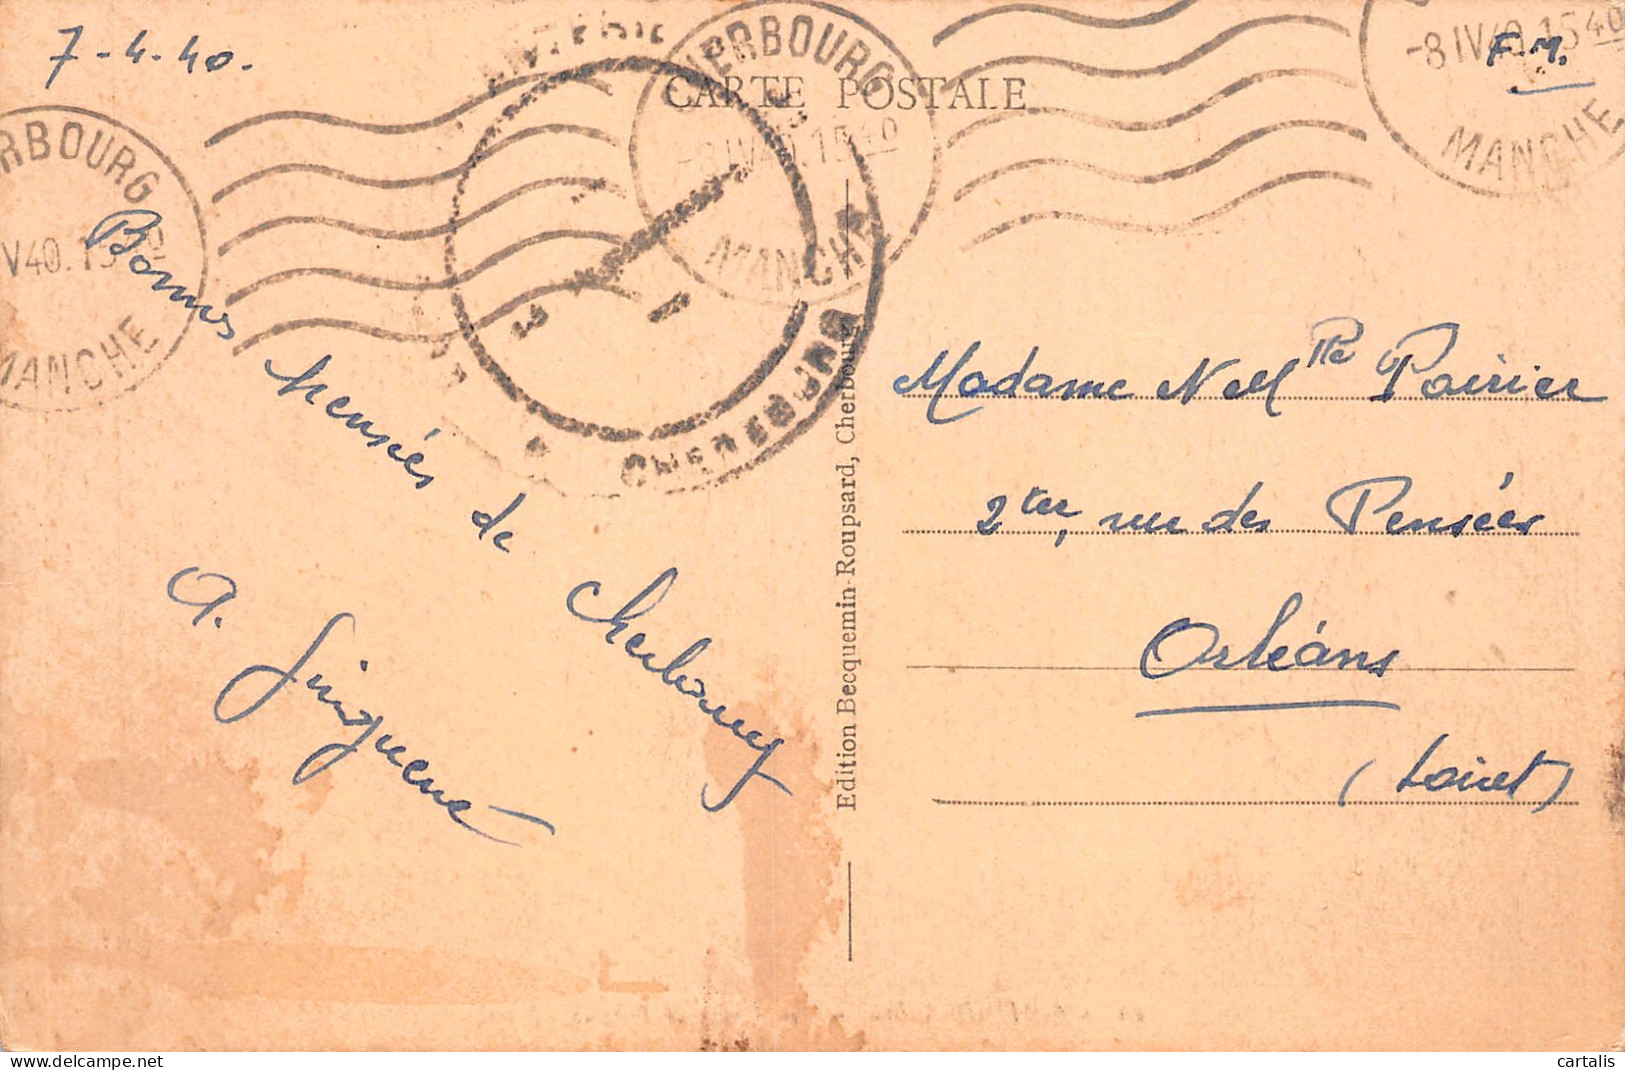 7-4-40.
CHERBOURG
-8 IV 40. 15 40
MANCHE
CHERBOURG
-8 IV 40. 15 40
MANCHE
-8 IV 40. 15 40
MANCHE
F.M.
CARTE POSTALE
CHERBOURG
Bonnes pensées de Cherbourg
A.
Edition Becquemin-Roupsard, Cherbourg
Madame Poirier
2ter, rue des Pensées
Orléans
(Loiret)
cartalis